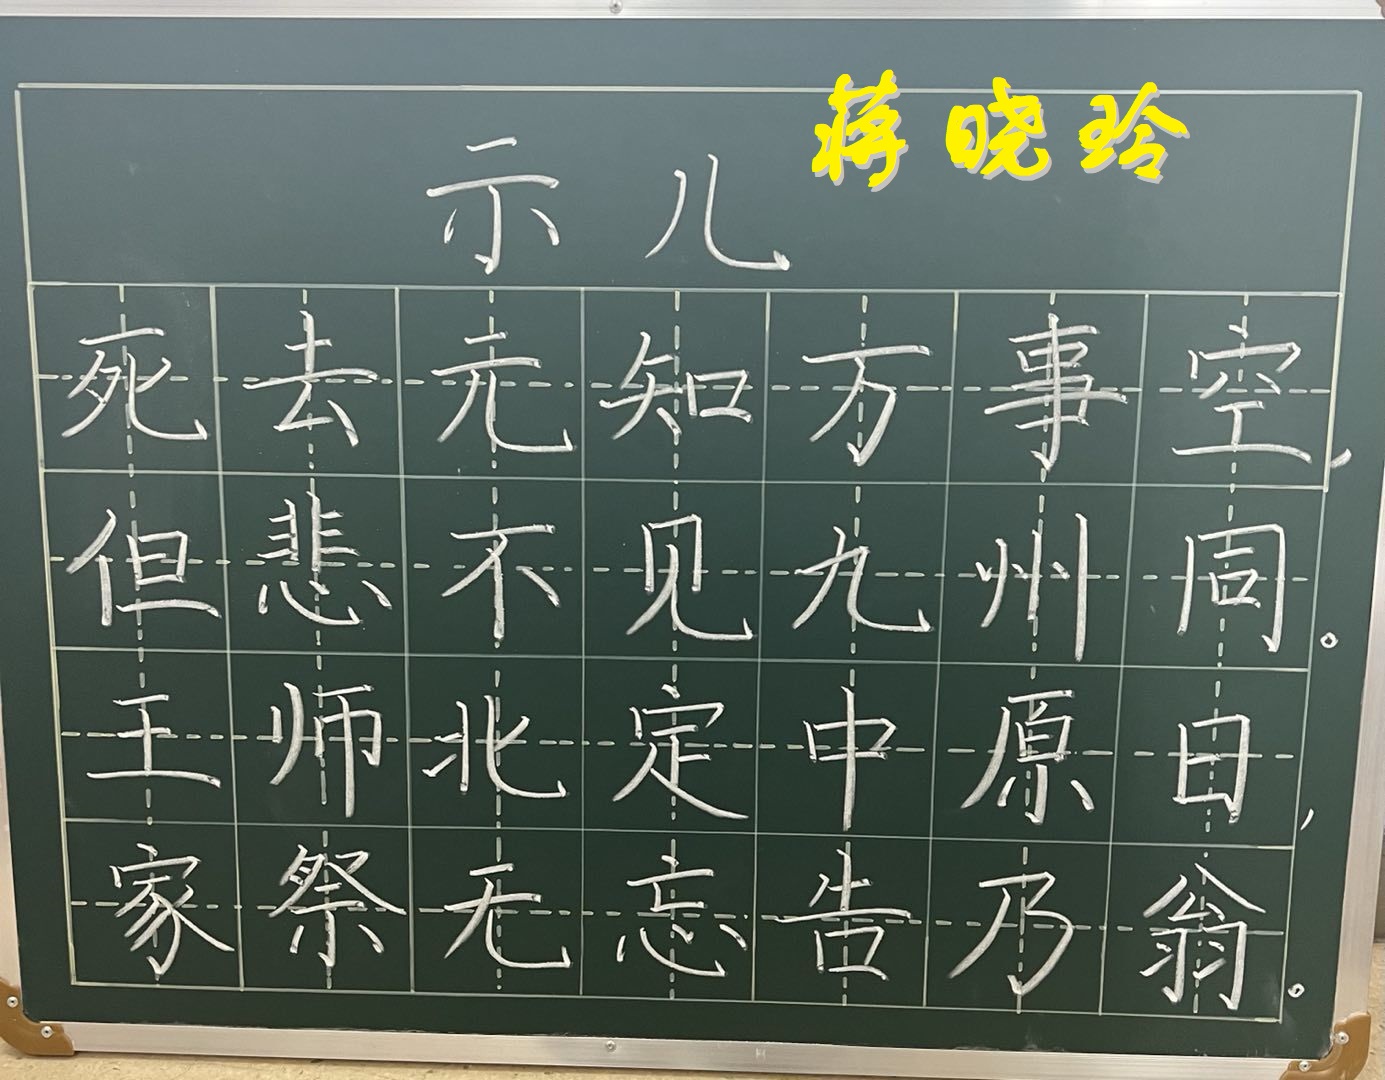 蒋晓玲
示儿
死去元知万事空，
但悲不见九州同。
王师北定中原日，
家祭无忘告乃翁。